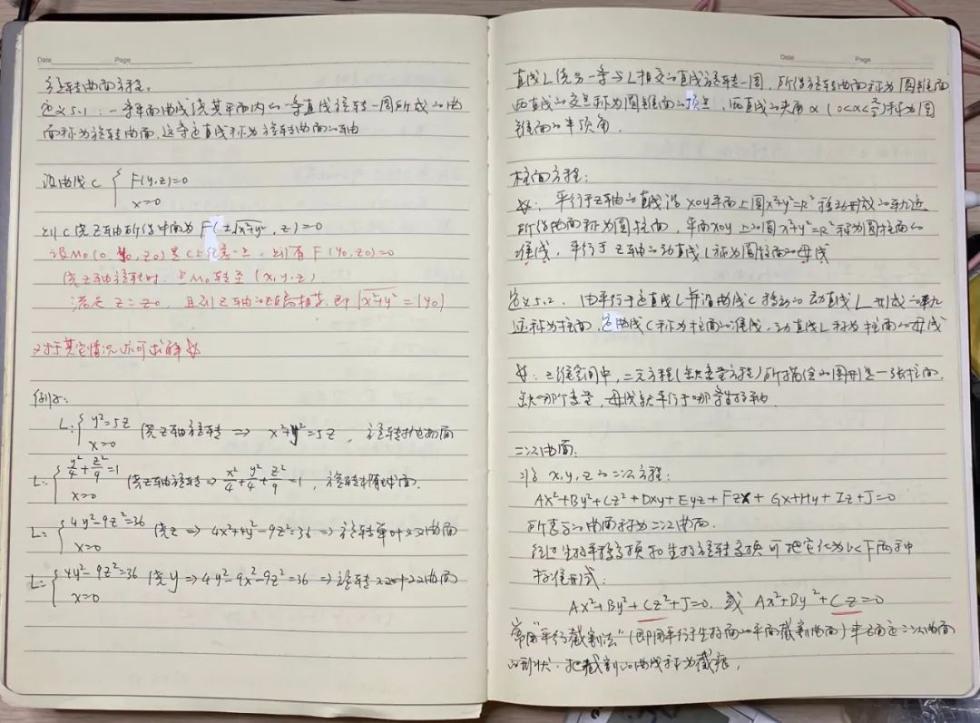 Date Page
旋转曲面方程.
定义5.1: 一条平面曲线绕其平面内的一条直线旋转一周所成的曲
面称为旋转曲面,这条定直线称为旋转曲面的轴
设曲线C { F(y,z)=0
x=0
则C绕Z轴所得曲面为 F(±√x²+y², z)=0
设M₀(0, y₀, z₀)是C上任意一点, 则有 F(y₀,z₀)=0
绕Z轴旋转时, 点M₀转至(x,y,z)
满足 z=z₀, 且到Z轴的距离相等, 即 √x²+y² = |y₀|
对于其它情况亦可求解
例:
L: { y²=5z 绕z轴旋转 ⇒ x²+y²=5z, 旋转抛物面
x=0
L: { y²/4+z²/9=1 绕z轴旋转 ⇒ x²/4+y²/4+z²/9=1, 旋转椭球面.
x=0
L: { 4y²-9z²=36 绕z ⇒ 4x²+4y²-9z²=36 ⇒ 旋转单叶双曲面
x=0
L: { 4y²-9z²=36 绕y ⇒ 4y²-9x²-9z²=36 ⇒ 旋转双叶双曲面
x=0
Date Page
直线L绕另一条与L相交的直线旋转一周, 所得旋转曲面称为圆锥面
两直线的交点称为圆锥面的顶点, 两直线的夹角α(0<α<π/2)称为圆
锥面的半顶角.
柱面方程:
平行于Z轴的直线沿xoy平面上圆x²+y²=R²移动形成的轨迹
所得曲面称为圆柱面, 平面xoy上的圆x²+y²=R²称为圆柱面的
准线, 平行于Z轴的动直线L称为圆柱面的母线
定义5.2. 由平行于定直线L并沿曲线C移动的动直线L形成的轨
迹称为柱面, 定曲线C称为柱面的准线, 动直线L称为柱面的母线
三维空间中, 二元方程(缺变量方程)所描绘的图形是一张柱面,
缺哪个变量, 母线就平行于哪条坐标轴.
二次曲面.
x, y, z的二次方程:
Ax²+By²+Cz²+Dxy+Eyz+Fzx+Gx+Hy+Iz+J=0
所表示的曲面称为二次曲面.
经过坐标平移变换和坐标旋转变换可把它化为以下两种
标准形式:
Ax²+By²+Cz²+J=0. 或 Ax²+By²+Cz=0
常用"平行截割法"(即用平行于坐标面的平面截割曲面)来确定二次曲面
的形状. 把截割的曲线称为截痕.